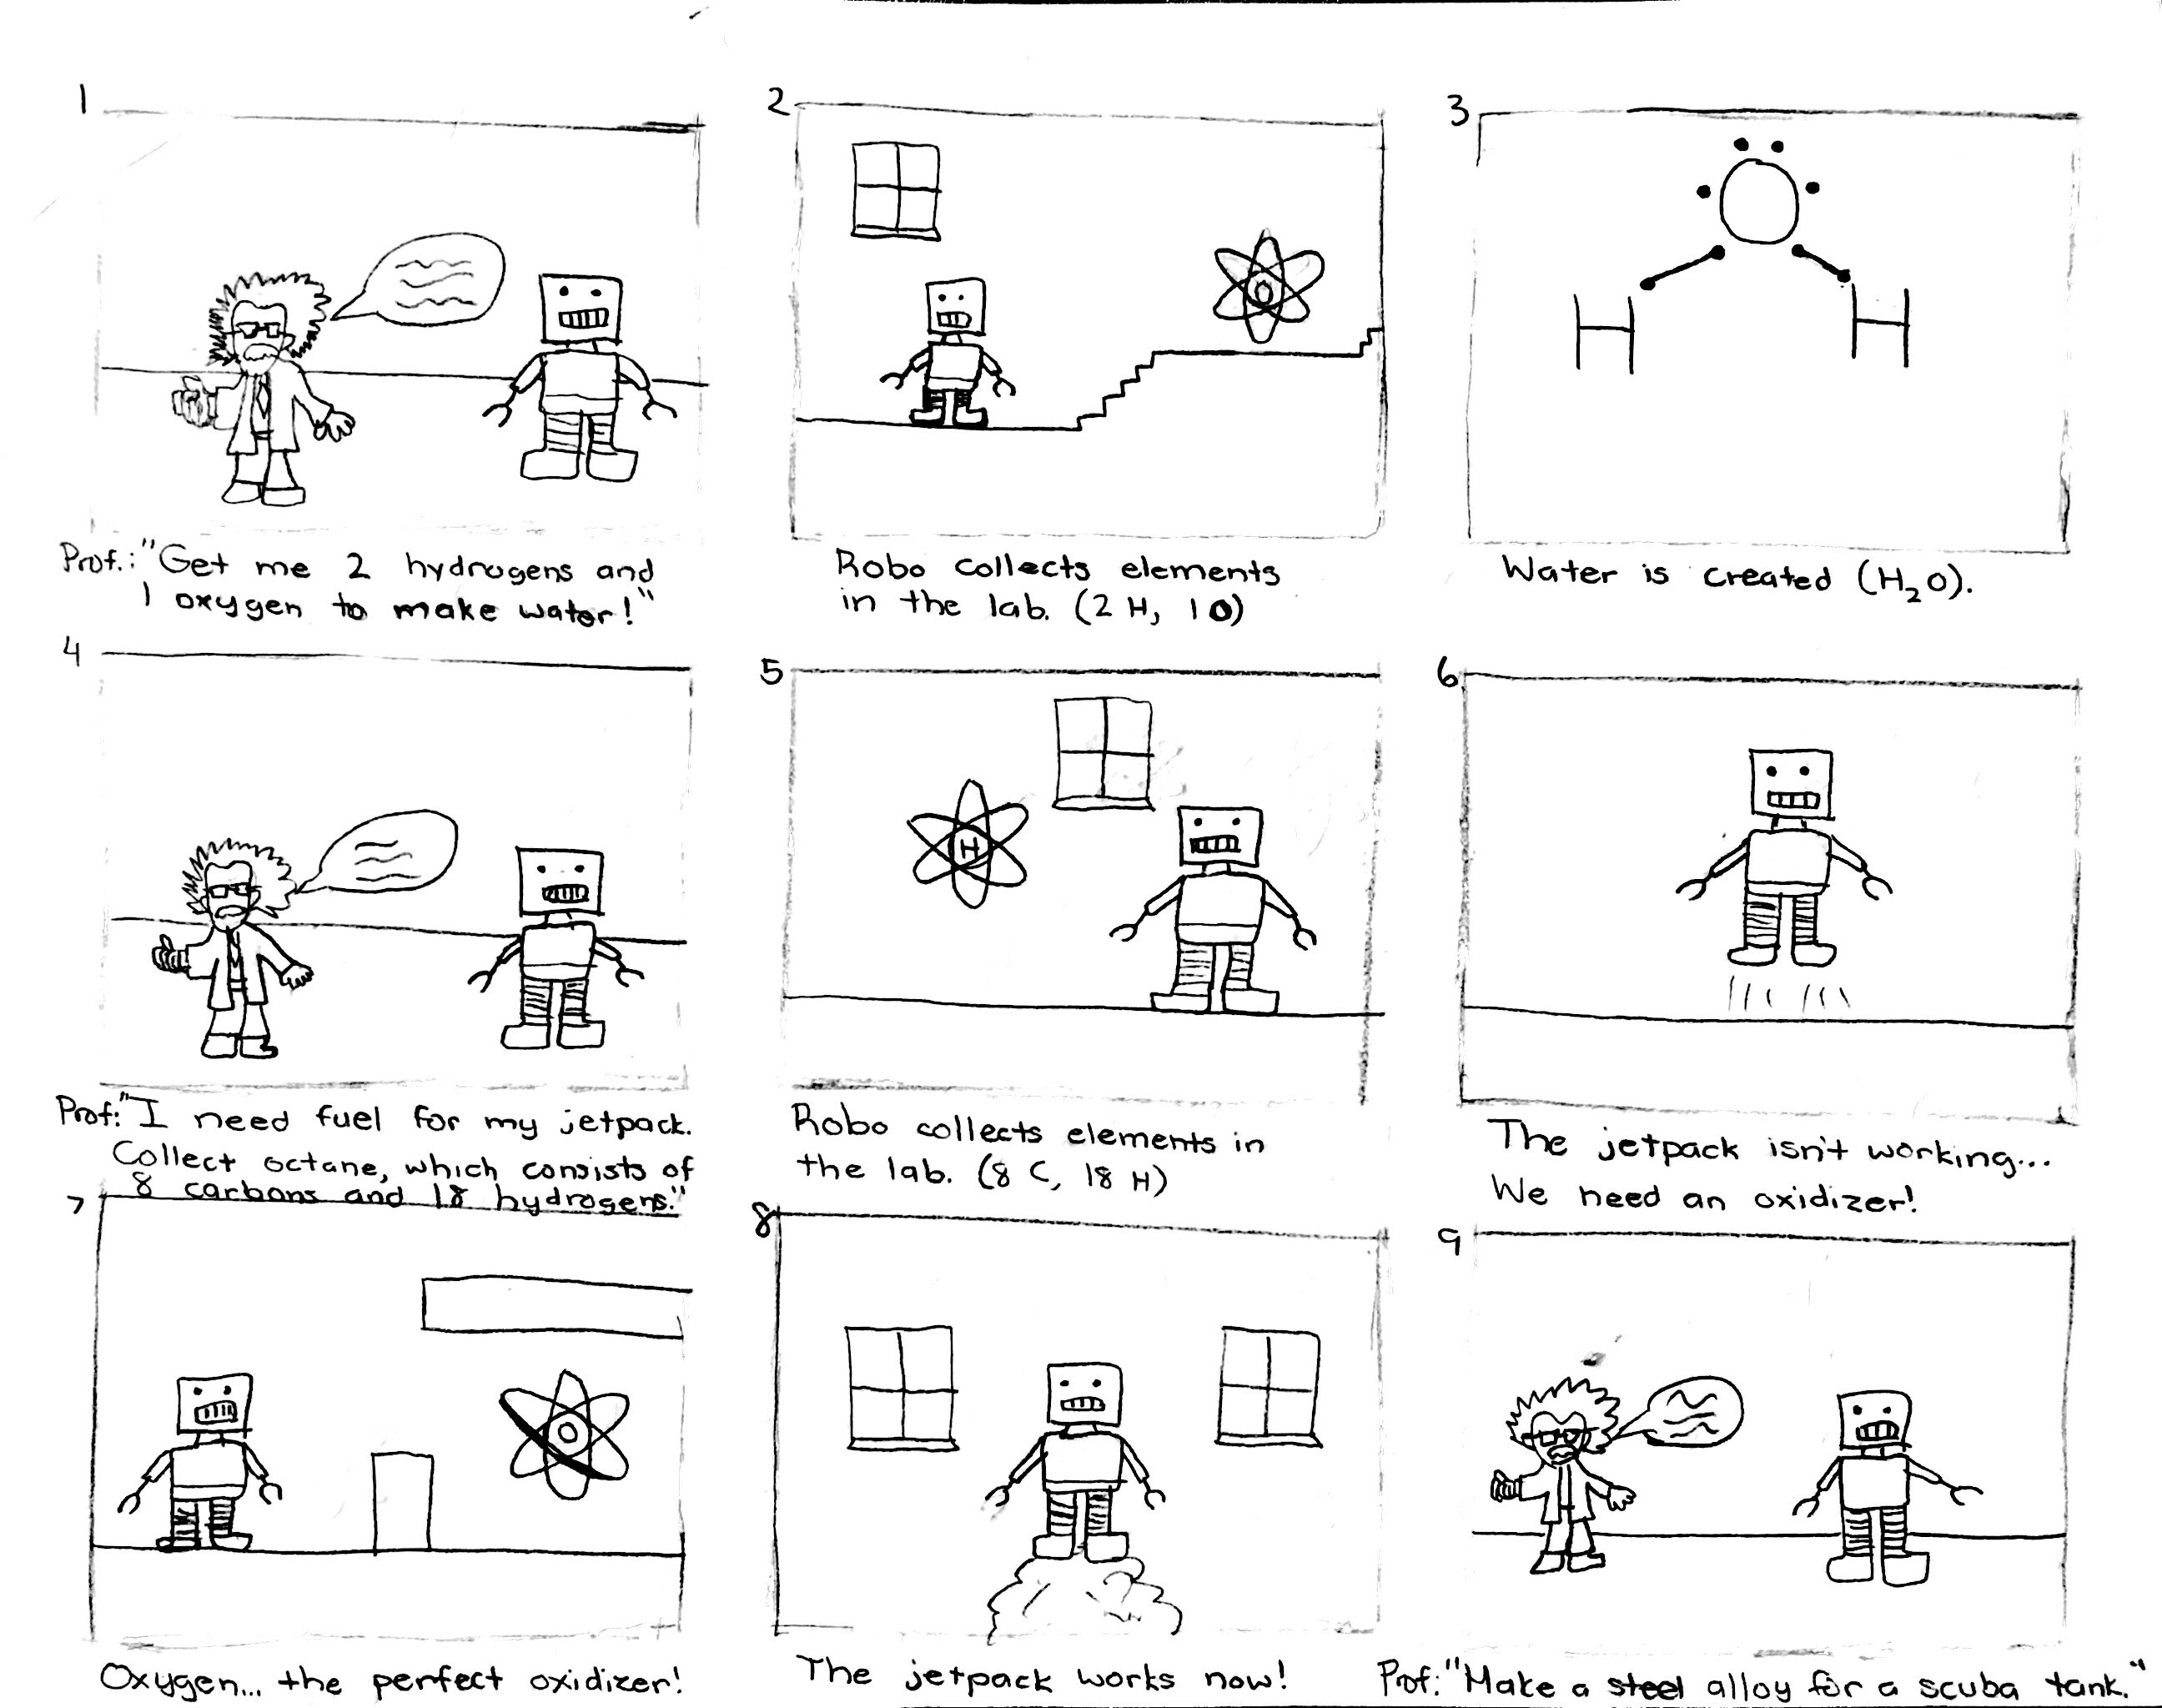 1
2
3
O
O
H
H
Prof.: "Get me 2 hydrogens and
1 oxygen to make water!"
Robo collects elements
in the lab. (2 H, 1 O)
Water is created (H₂O).
4
5
6
H
Prof: "I need fuel for my jetpack.
Collect octane, which consists of
8 carbons and 18 hydrogens."
Robo collects elements in
the lab. (8 C, 18 H)
The jetpack isn't working...
We need an oxidizer!
7
8
9
O
Oxygen... the perfect oxidizer!
The jetpack works now!
Prof: "Make a steel alloy for a scuba tank."